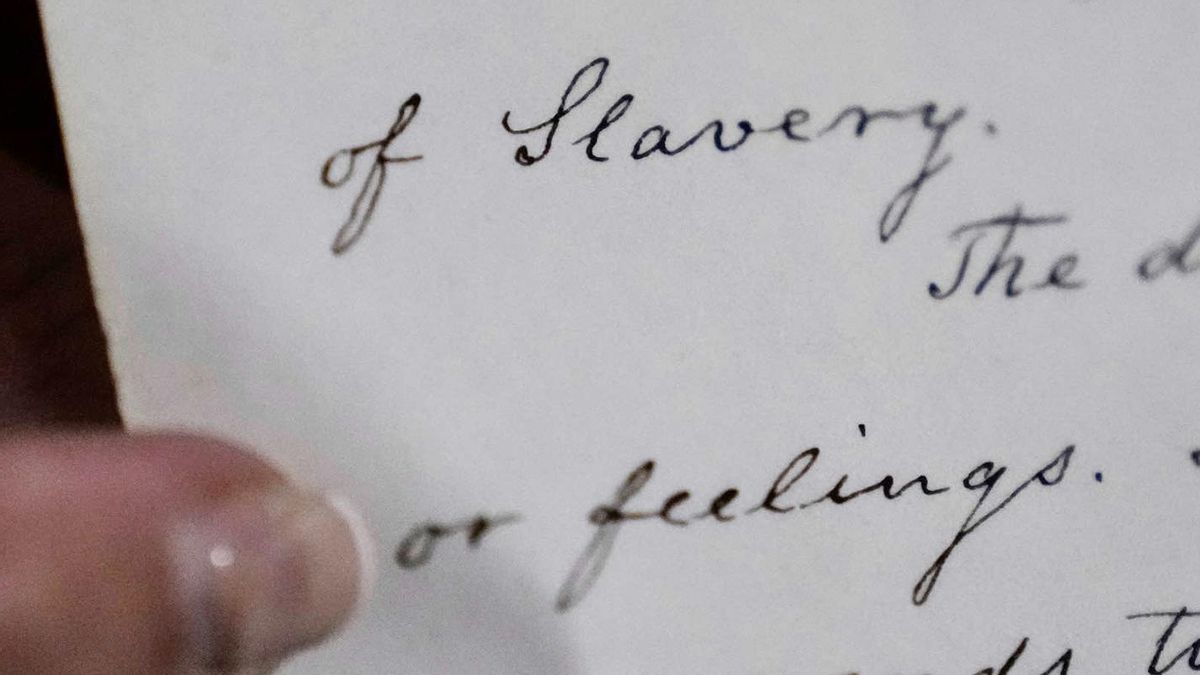 of Slavery.
The
or feelings.